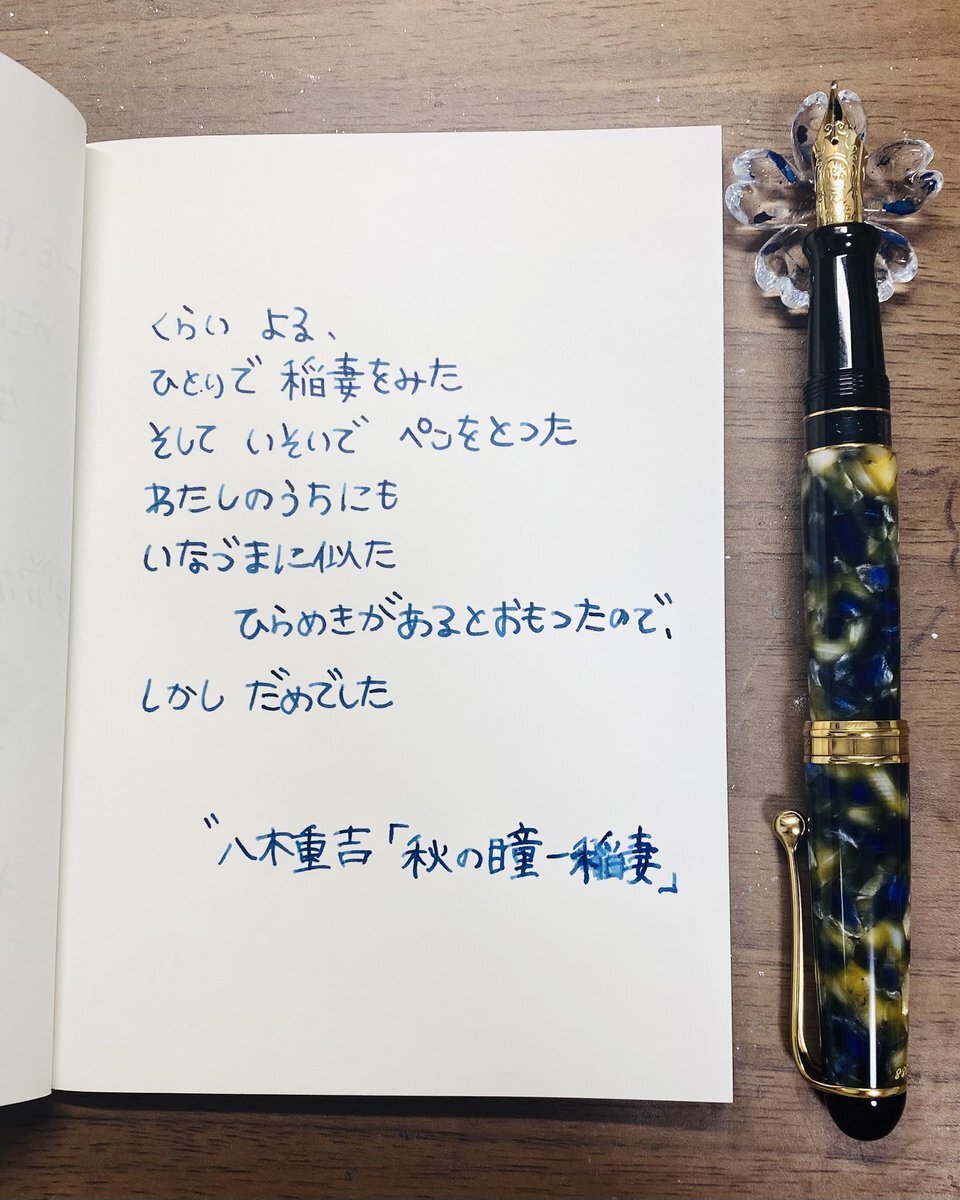 くらい よる、
ひとりで 稲妻をみた
そして いそいで ペンをとつた
わたしのうちにも
いなづまに似た
ひらめきがあるとおもつたので、
しかし だめでした
〃八木重吉「秋の瞳ー稲妻」